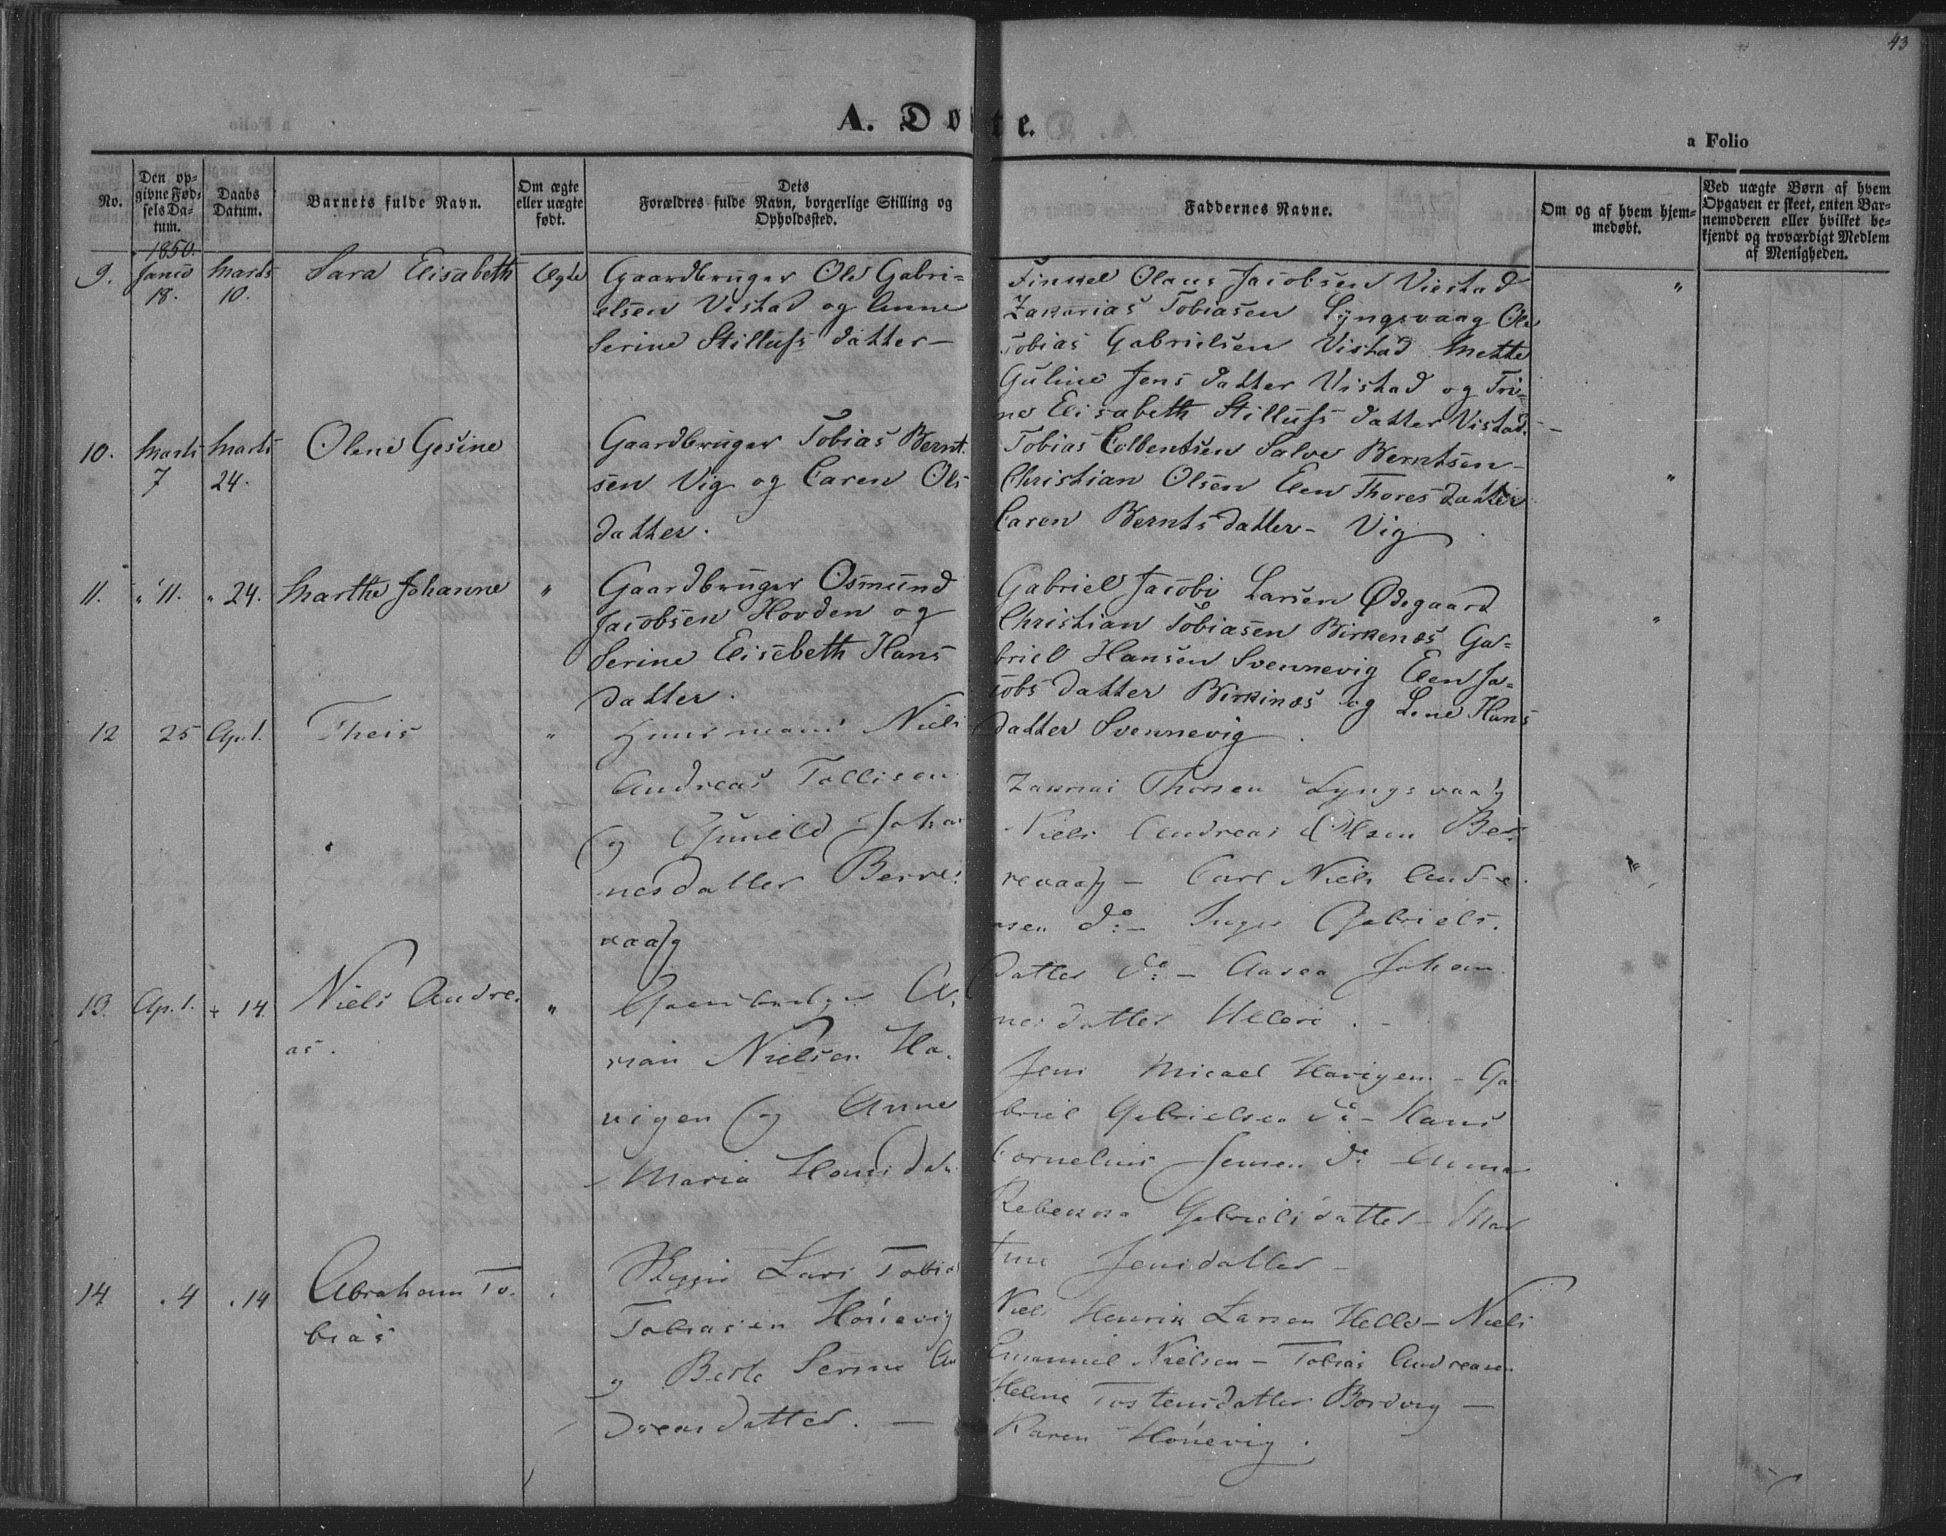 43
A. Døbte.
a Folio
No.
Den op-
givne Fød-
sels Da-
tum.
Daabs
Datum.
Barnets fulde Navn.
Om ægte
eller uægte
født.
Dets
Forældres fulde Navn, borgerlige Stilling og
Opholdssted.
Faddernes Navne.
Om og af hvem hjem-
medøbt.
Ved uægte Børn af hvem
Opgaven er skeet, enten Bar-
nemoderen eller hvilket be-
kjendt og troværdigt Medlem
af Menigheden.
1850.
9.
18.
Marts
10.
Sara Elisabeth
Ægte
Gaardbruger Ole Gabri=
elsen Vistad og Anne
Serine Stillufs datter —
Olaus Jacobsen Viestad
Zakarias Tobiasen Lyngsvaag Ole
Tobias Gabrielsen Vistad Mette
Guline Jens datter Vistad og Tri-
ne Elisabeth Stillufs datter Vistad.
"
10.
Marts
7
Marts
24.
Olene Gesine
Gaardbruger Tobias Bernt
sen Vig og Caren Ols
datter.
Tobias Salve Berntsen
Christian Olsen Elen Thores datter
Caren Bernts datter - Vig
"
11.
" 11.
" 24.
Marthe Johanne
"
Gaardbruger Osmund
Jacobsen Hovden og
Serine Elisebeth Hans
datter.
Gabriel Jacobi Larsen Ødegaard
Christian Tobiasen Birkenæs Ga=
briel Hansen Svennevig Elen Ja=
cobs datter Birkinæs og Lene Hans
datter Svennevig.
"
12
25
Apl.
Theis
"
Huusmand Niels
Andreas Tallisen
og Gunild Johan
nesdatter Berre:
vaag
Thorsen Lyngsvaag
Niels Andreas Olsen Ber
revaag — Carl Niels Andre
sen do — Inger Gabriels.
datter do — Aasea Johan
nesdatter
"
13.
Apl.
" 14.
Niels Andre.
as.
"
Gaardbruger
Nielsen Ha.
vigen og Anne
Maria Hansdatt.
Jens Micael Havigen - Ga
briel Gabrielsen do - Hans
Cornelius Jensen do Anna
Rebekka Gabrielsdatter - Mar
tine Jensdatter —
14
" 4
" 14
Abraham To.
bias
Lars Tobias
Tobiasen Hönevig
og Berte Serine An
dreasdatter. —
Niels Henrik Larsen Helle - Niels
Emanuel Nielsen - Tobias Andreasen
Helene Tostensdatter Bordvig —
Karen Hönevig.